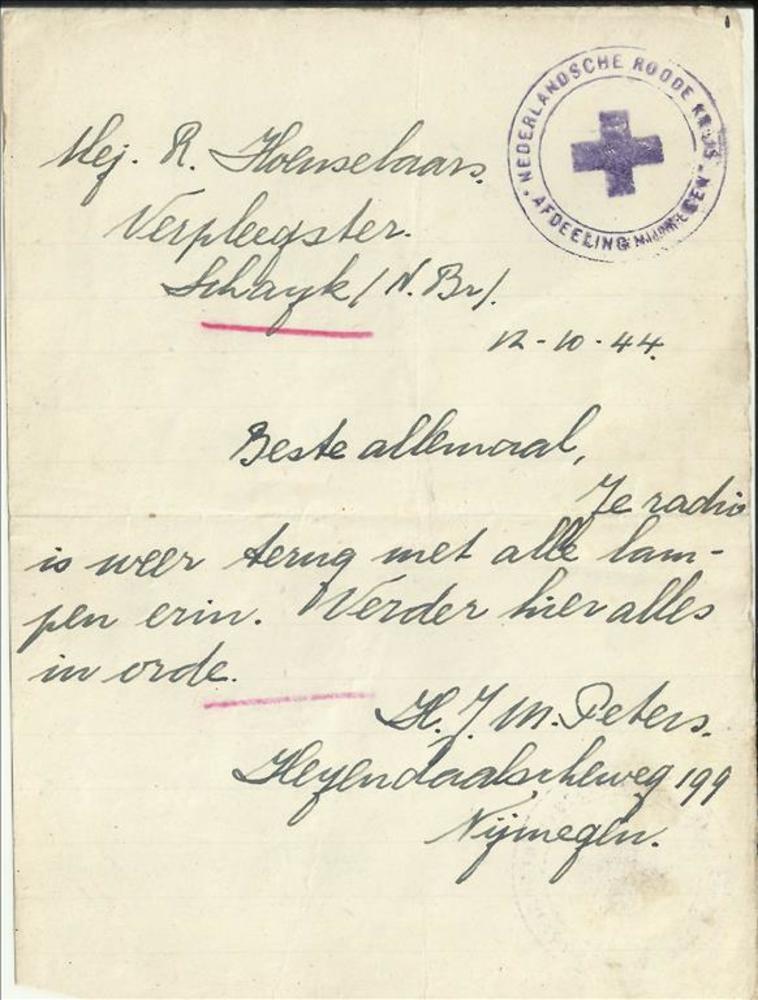 NEDERLANDSCHE ROODE KRUIS
AFDEELING NIJMEGEN
Mej. R. Hoenselaars.
Verpleegster.
Schayk (N. Br).
12-10-44.
Beste allemaal,
Je radio
is weer terug met alle lam-
pen erin. Verder hier alles
in orde.
H. J. M. Peters.
Heyendaalscheweg 199
Nijmegen.